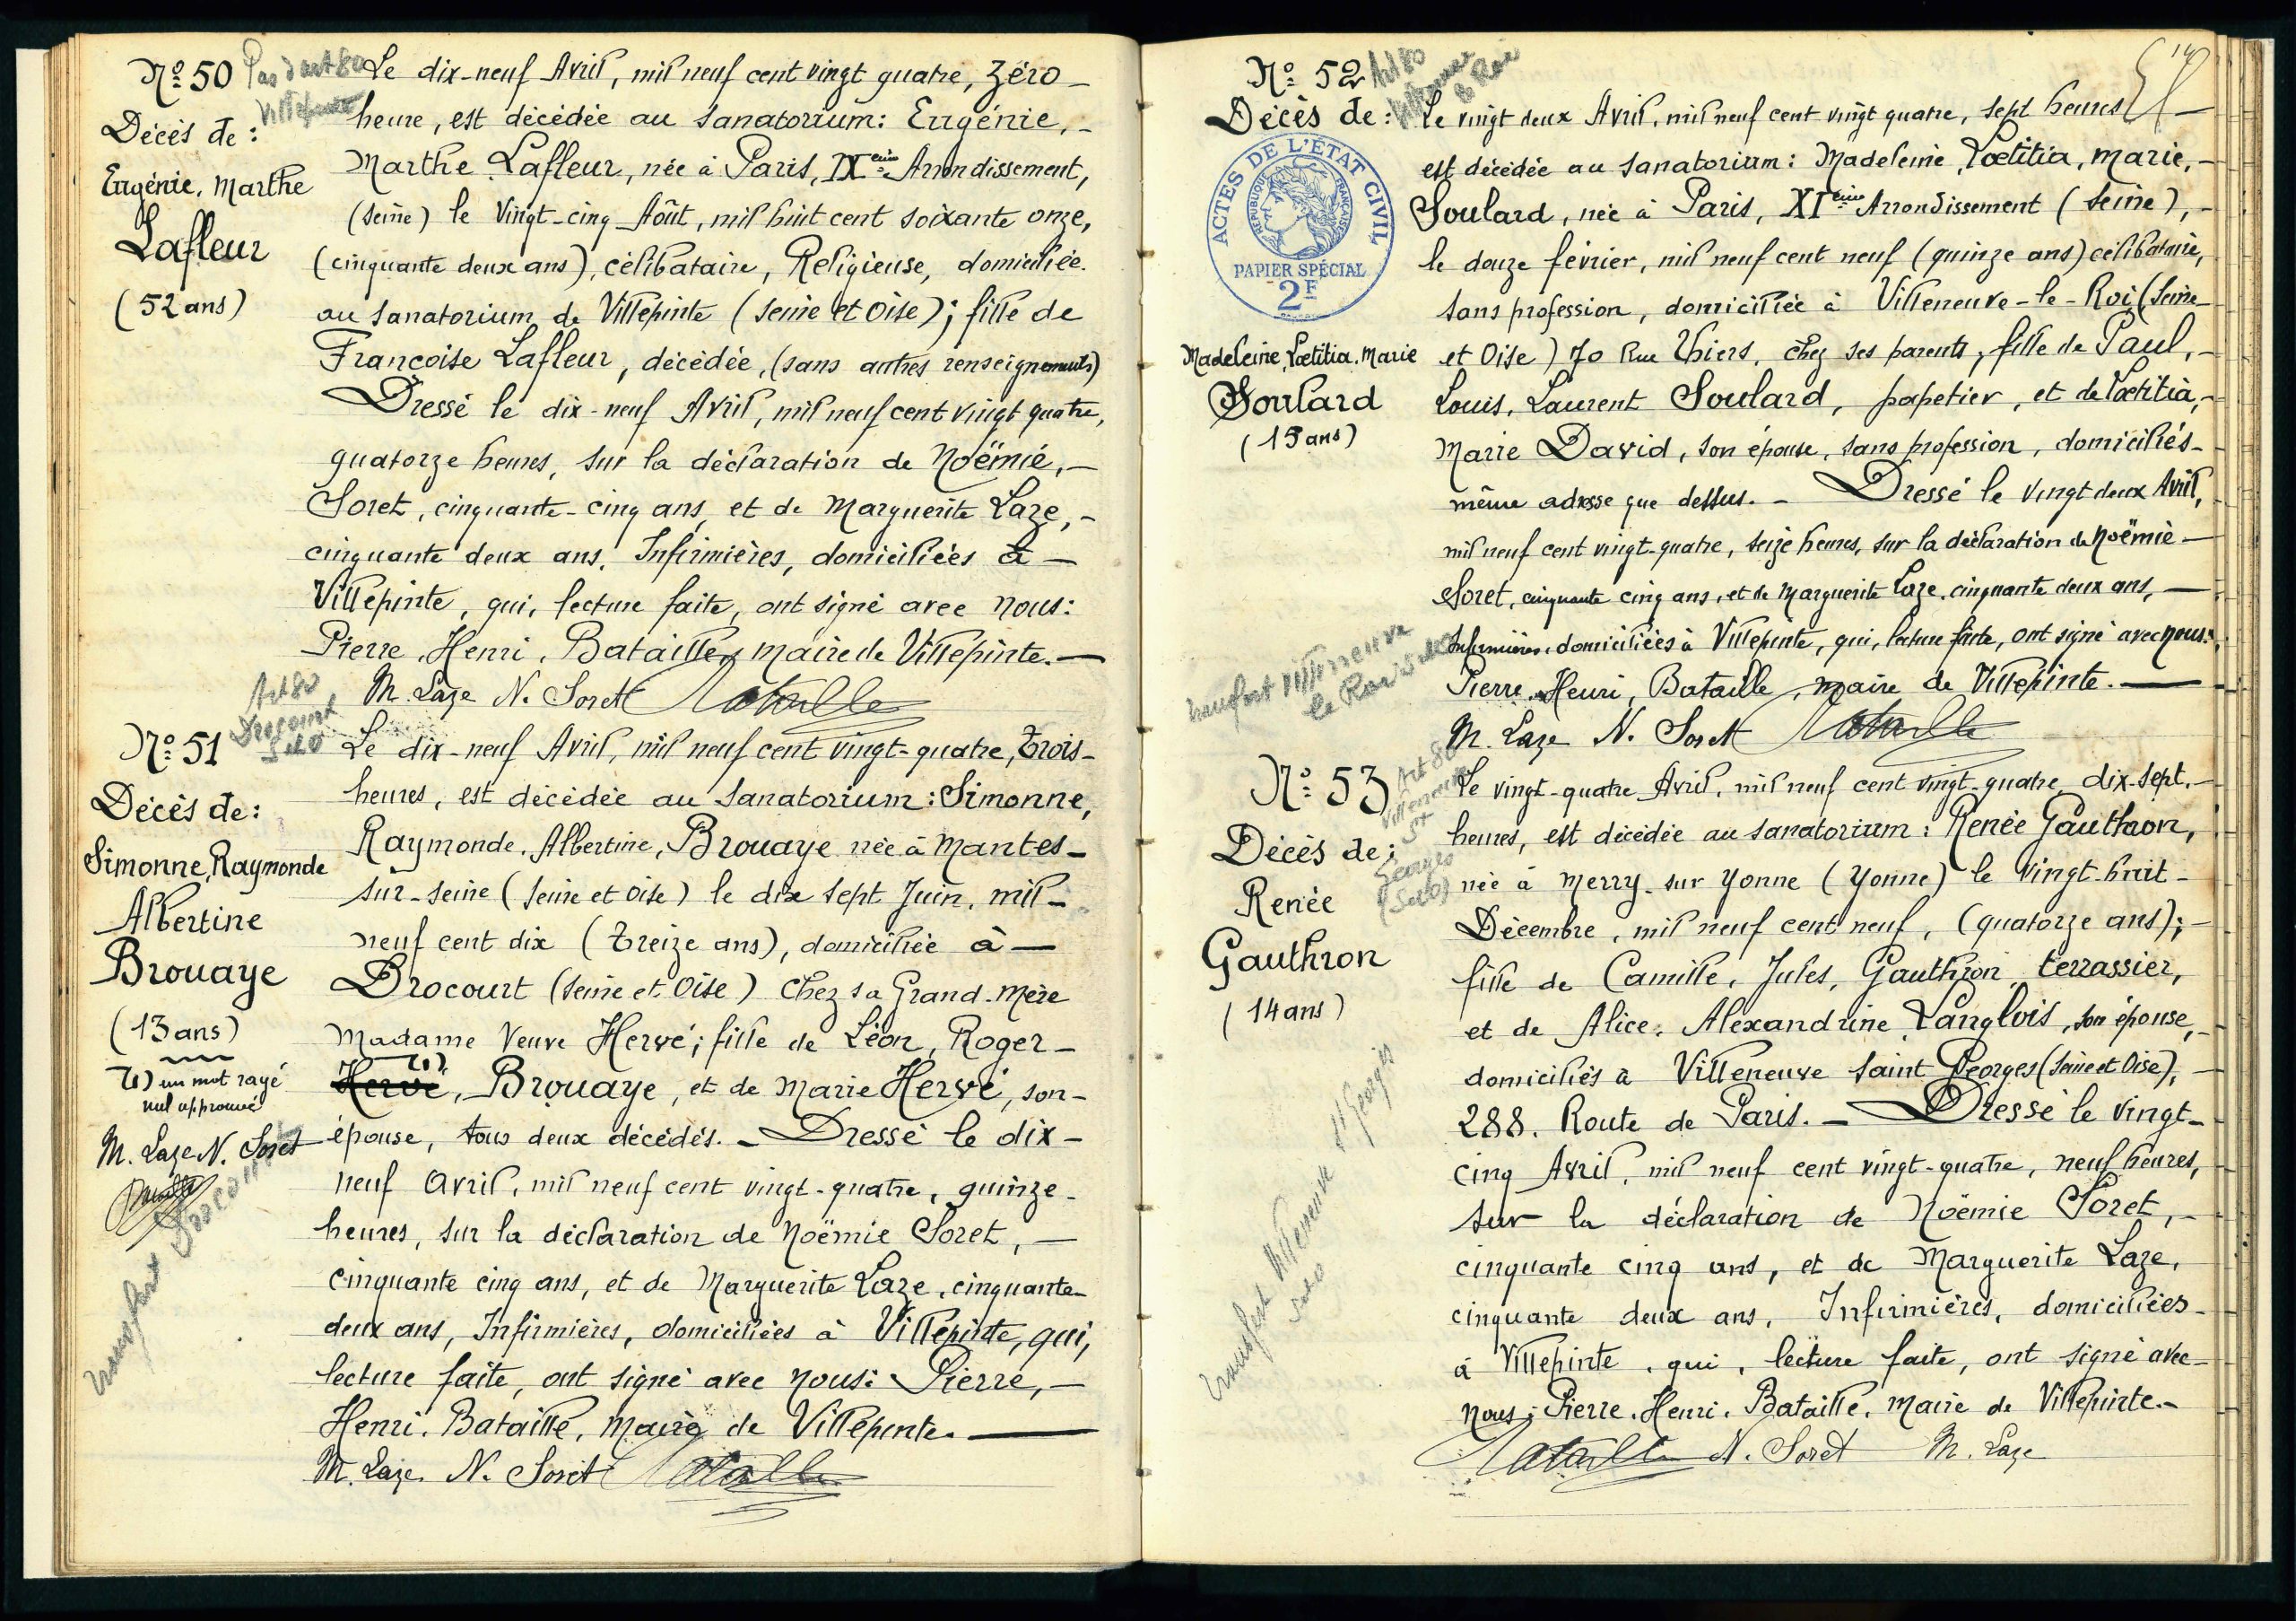 Nº 50
Pas d'art 80
Villepinte
Décès de :
Eugénie, Marthe
Lafleur
(52 ans)
Le dix-neuf Avril, mil neuf cent vingt quatre, zéro
heure, est décédée au sanatorium : Eugénie,
Marthe Lafleur, née à Paris, IXème Arrondissement,
(Seine) le vingt-cinq Août, mil huit cent soixante onze,
(cinquante deux ans), célibataire, Religieuse, domiciliée
au sanatorium de Villepinte (Seine et Oise); fille de
Françoise Lafleur, décédée, (sans autres renseignements)
Dressé le dix-neuf Avril, mil neuf cent vingt quatre,
quatorze heures, sur la déclaration de Noëmie,
Soret, cinquante-cinq ans, et de Marguerite Laze,
cinquante deux ans, Infirmières, domiciliées à
Villepinte, qui, lecture faite, ont signé avec nous :
Pierre, Henri, Bataille, maire de Villepinte.
M. Laze N. Soret Bataille
Nº 51
Art 80
Drocourt
S et O
Décès de :
Simonne, Raymonde
Albertine
Brouaye
(13 ans)
(1) un mot rayé
nul approuvé
M. Laze N. Soret
transfert Drocourt
Le dix-neuf Avril, mil neuf cent vingt-quatre, trois
heures, est décédée au sanatorium : Simonne,
Raymonde, Albertine, Brouaye née à Mantes
sur-Seine (Seine et Oise) le dix sept Juin, mil
neuf cent dix (treize ans), domiciliée à
Drocourt (Seine et Oise) chez sa Grand-Mère
Madame Veuve Hervé; fille de Léon, Roger
(1)
Hervé, Brouaye, et de Marie Hervé, son
épouse, tous deux décédés. Dressé le dix
neuf Avril, mil neuf cent vingt-quatre, quinze
heures, sur la déclaration de Noëmie Soret,
cinquante cinq ans, et de Marguerite Laze, cinquante
deux ans, Infirmières, domiciliées à Villepinte, qui,
lecture faite, ont signé avec nous : Pierre,
Henri, Bataille, Maire de Villepinte.
M. Laze N. Soret Bataille
Nº 52
Art 80
Villeneuve
le Roi
Décès de :
ACTES DE L'ÉTAT CIVIL
RÉPUBLIQUE FRANÇAISE
PAPIER SPÉCIAL
2F
Madeleine, Lœtitia, Marie
Soulard
(15 ans)
transfert Villeneuve
le Roi S et O
Le vingt deux Avril, mil neuf cent vingt quatre, sept heures
est décédée au sanatorium : Madeleine, Lœtitia, Marie,
Soulard, née à Paris, XIème Arrondissement (Seine),
le douze février, mil neuf cent neuf (quinze ans) célibataire,
sans profession, domiciliée à Villeneuve-le-Roi (Seine
et Oise) 70 Rue Thiers, chez ses parents, fille de Paul,
Louis, Laurent Soulard, papetier, et de Lœtitia,
Marie David, son épouse, sans profession, domiciliés
même adresse que dessus. Dressé le vingt deux Avril,
mil neuf cent vingt-quatre, seize heures, sur la déclaration de Noëmie
Soret, cinquante cinq ans, et de Marguerite Laze, cinquante deux ans,
Infirmières, domiciliées à Villepinte, qui, lecture faite, ont signé avec nous :
Pierre, Henri, Bataille, maire de Villepinte.
M. Laze N. Soret Bataille
Nº 53
Art 80
Villeneuve
St
Georges
(S et O)
Décès de :
Renée
Gauthron
(14 ans)
transfert Villeneuve St Georges
S et O
Le vingt-quatre Avril, mil neuf cent vingt-quatre, dix-sept
heures, est décédée au sanatorium : Renée Gauthron,
née à Merry-sur Yonne (Yonne) le vingt-huit
Décembre, mil neuf cent neuf, (quatorze ans);
fille de Camille, Jules, Gauthron, terrassier,
et de Alice, Alexandrine Langlois, son épouse,
domiciliés à Villeneuve Saint Georges (Seine et Oise),
288, Route de Paris. Dressé le vingt
cinq Avril, mil neuf cent vingt-quatre, neuf heures,
sur la déclaration de Noëmie Soret,
cinquante cinq ans, et de Marguerite Laze,
cinquante deux ans, Infirmières, domiciliées
à Villepinte, qui, lecture faite, ont signé avec
nous : Pierre, Henri, Bataille, Maire de Villepinte.
Bataille N. Soret M. Laze